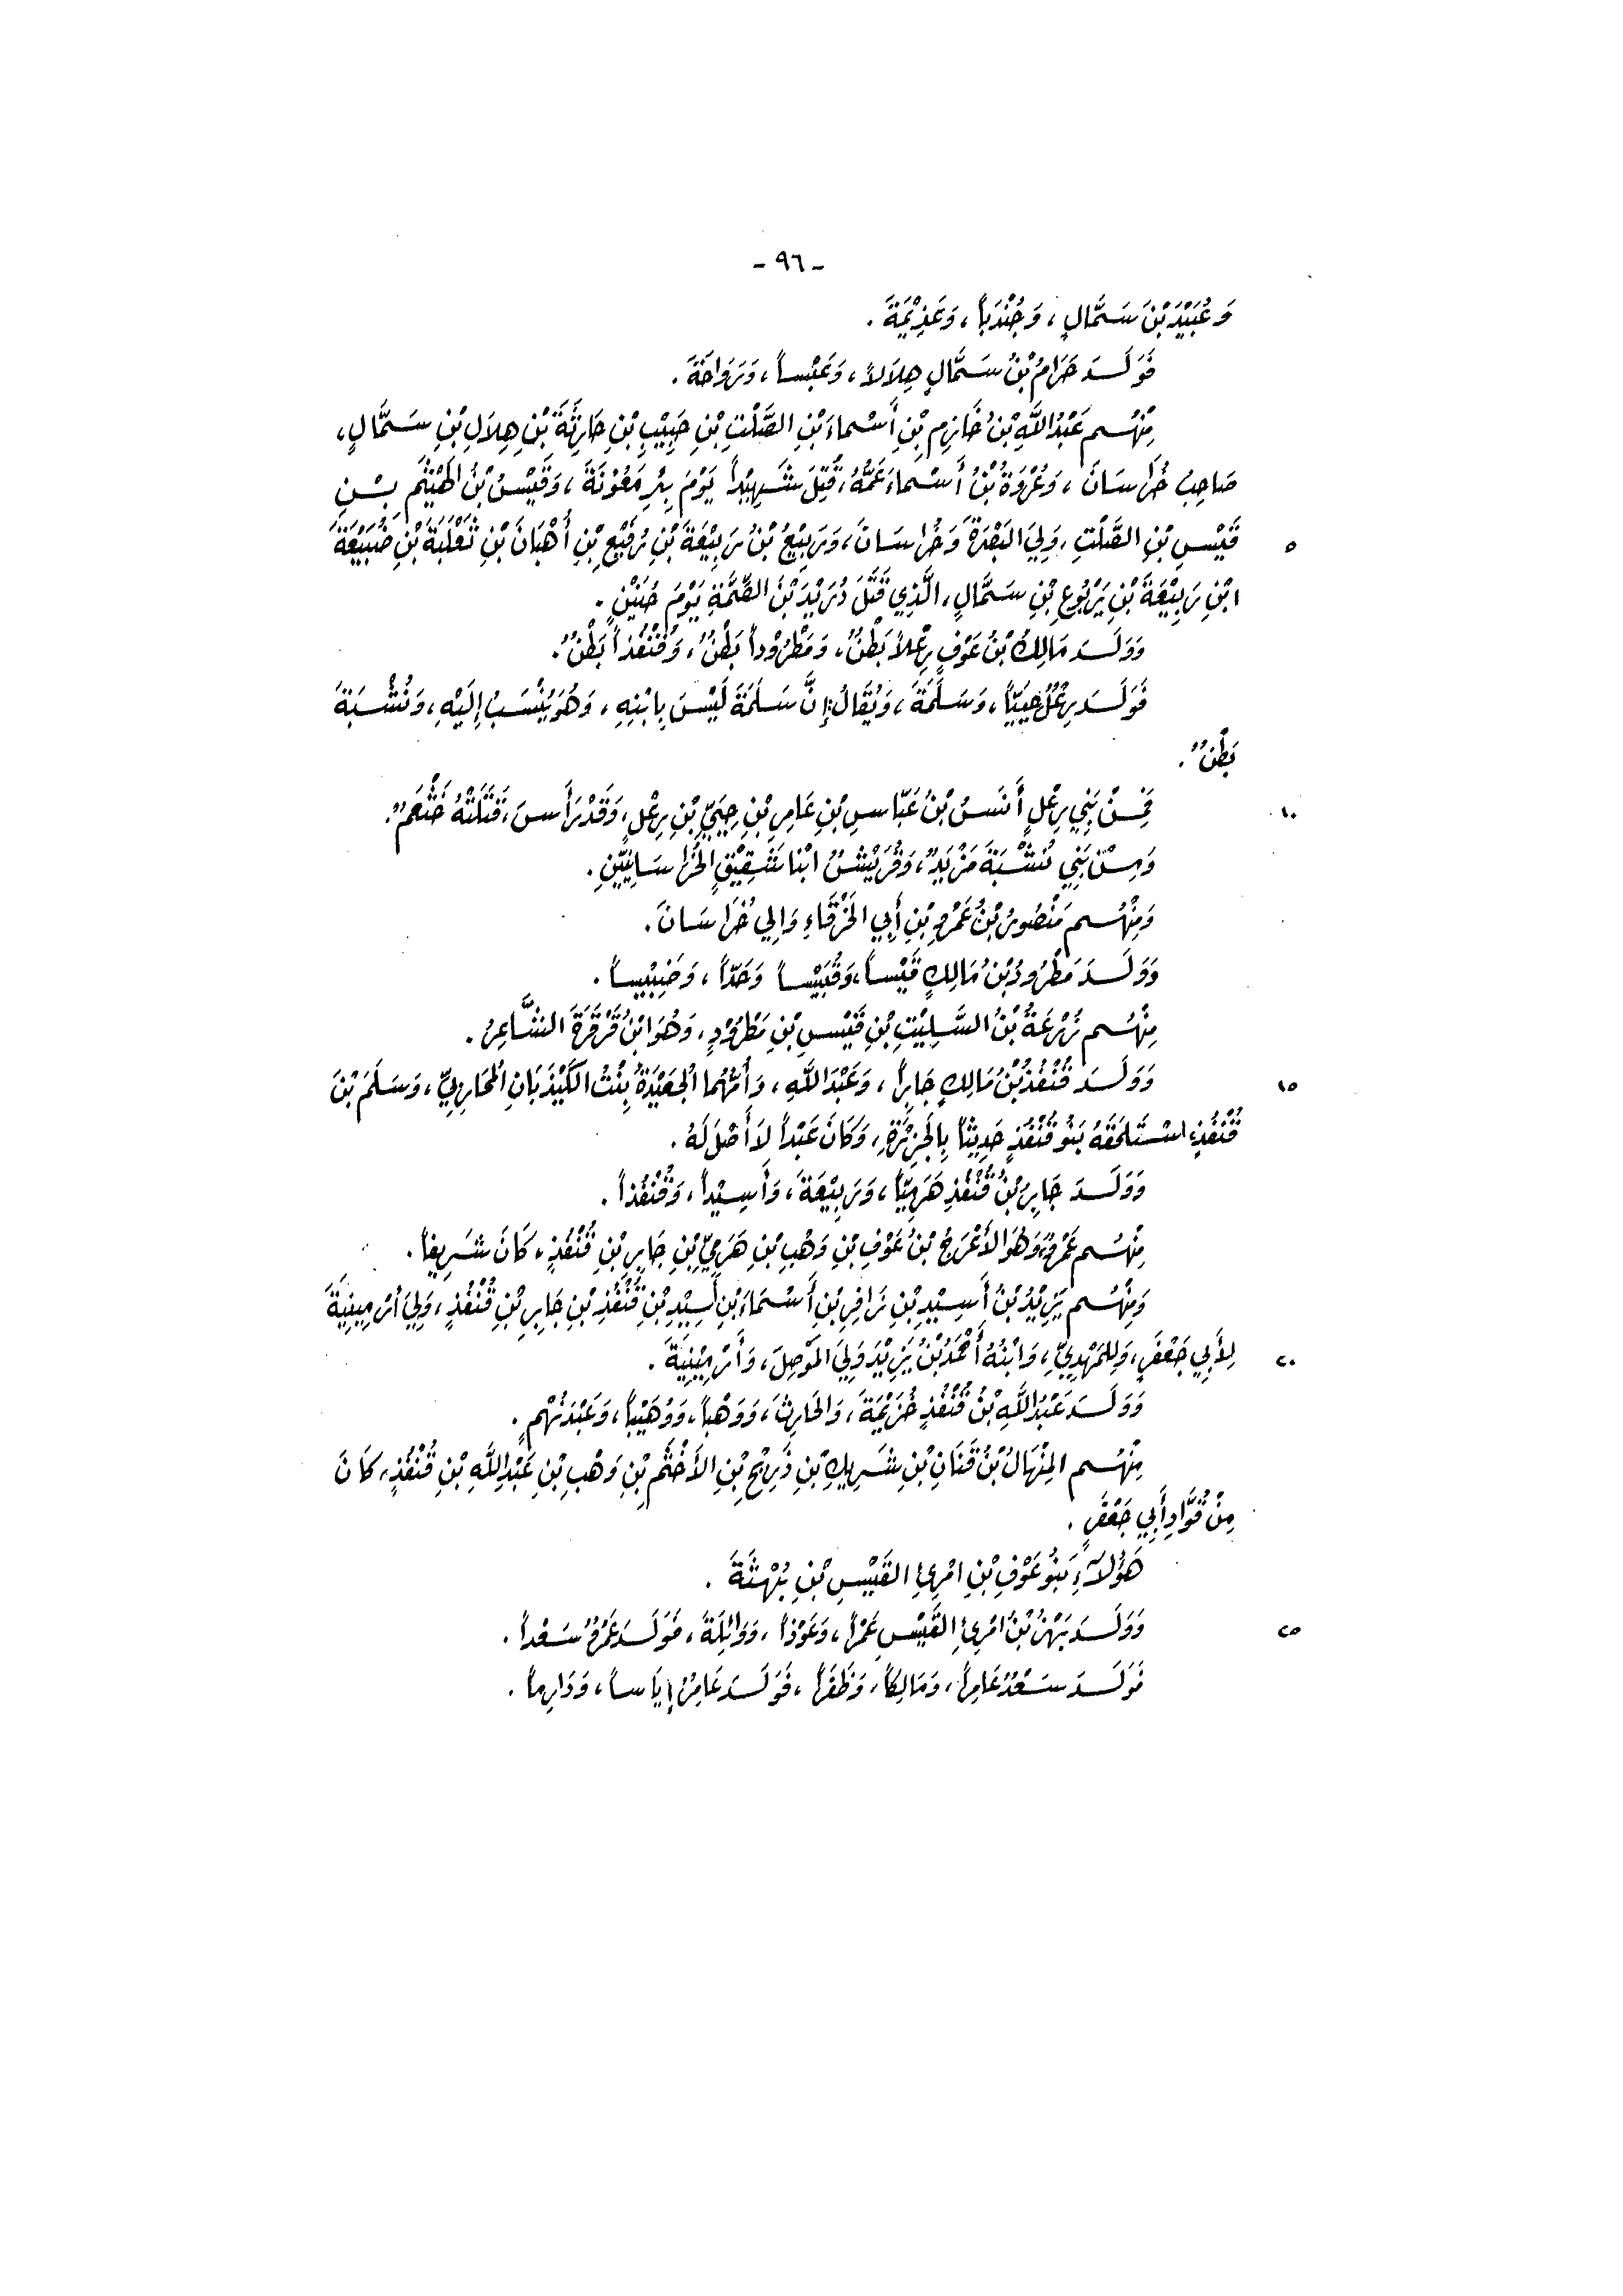 - ٩٦ -
وَعُبَيْدَ بْنَ سَمَّالٍ، وَجُنْدَباً، وَعَذِيْمَةَ.
فَوَلَـدَ حَرَامُ بْنُ سَمَّالٍ هِلَالاً، وَعَبْساً، وَرَوَاحَةَ.
مِنْهُـم عَبْدُ اللَّهِ بْنُ خَازِمِ بْنِ أَسْماءَ بْنِ الصَّلْتِ بْنِ حَبِيْبِ بْنِ حَارِثَةَ بْنِ هِلَالِ بْنِ سَمَّالٍ،
صَاحِبُ خُرَاسَانَ، وَعُرْوَةُ بْنُ أَسْماءَ عَمُّهُ، قُتِلَ شَهِيْداً يَوْمَ بِئْرِ مَعُوْنَةَ، وَقَيْسُ بْنُ الهَيْثَمِ بْـنِ
٥ قَيْسِ بْنِ الصَّلْتِ، وَلِيَ البَصْرَةَ وَخُرَاسَانَ، وَرَبِيْعُ بْنُ رَبِيْعَةَ بْنِ رُفَيْعِ بْنِ أُهْبَانَ بْنِ ثَعْلَبَةَ بْنِ ضُبَيْعَةَ
ابْنِ رَبِيْعَةَ بْنِ يَرْبُوعِ بْنِ سَمَّالٍ، الَّذِي قَتَلَ دُرَيْدَ بْنَ الصِّمَّةِ يَوْمَ حُنَيْنٍ.
وَوَلَـدَ مَالِكُ بْنُ عَوْفٍ رِعْلاً بَطْنٌ، وَمَطْرُوْداً بَطْنٌ، وَقُنْفُذاً بَطْنٌ.
فَوَلَـدَ رِعْلٌ حِيَيّاً، وَسَلَمَةَ، وَيُقَالُ: إِنَّ سَلَمَةَ لَيْسَ بِابْنِهِ، وَهُوَ يُنْسَبُ إِلَيْهِ، وَنُشْبَةَ
بَطْنٌ.
١٠ فَمِـنْ بَنِي رِعْلٍ أَنَسُ بْنُ عَبَّاسِ بْنِ عَامِرِ بْنِ حِيَيِّ بْنِ رِعْلٍ، وَقَدْ رَأَسَ، قَتَلَتْهُ خَثْعَمٌ.
وَمِـنْ بَنِي نُشْبَةَ مَزْيَدٌ، وَقُرَيْشٌ ابْنا شَقِيْقٍ الخُرَاسَانِيَّيْنِ.
وَمِنْهُـم مَنْصُورُ بْنُ عَمْرِو بْنِ أَبِي الخَرْقَاءِ وَالِي خُرَاسَانَ.
وَوَلَـدَ مَطْرُودُ بْنُ مَالِكٍ قَيْساً، وَقُبَيْساً وَحَدّاً، وَضَبِيْساً.
مِنْهُـم زُرْعَةُ بْنُ السَّلِيْتِ بْنِ قَيْسِ بْنِ مَطْرُوْدٍ، وَهُوَ ابْنُ قَرْقَرَةَ الشَّاعِرُ.
١٥ وَوَلَـدَ قُنْفُذُ بْنُ مَالِكٍ جَابِراً، وَعَبْدَ اللَّهِ، وَأُمُّهُما الجَعَيْدَةُ بِنْتُ الكَيْذَبَانِ المُحَارِبِيِّ، وَسَلَمَ بْنَ
قُنْفُذٍ، اسْتَلْحَقَهُ بَنُو قُنْفُذٍ حَدِيثاً بِالجَزِيْرَةِ، وَكَانَ عَبْداً لَا أَصْلَ لَهُ.
وَوَلَـدَ جَابِرُ بْنُ قُنْفُذٍ هَرَمِيّاً، وَرَبِيْعَةَ، وَأَسِيْداً، وَقُنْفُذاً.
مِنْهُـم عَمْرٌو، وَهُوَ الأَعْرَجُ بْنُ عَوْفِ بْنِ وَهْبِ بْنِ هَرَمِيِّ بْنِ جَابِرِ بْنِ قُنْفُذٍ، كَانَ شَرِيفاً.
وَمِنْهُـم يَزِيْدُ بْنُ أَسِيْدِ بْنِ زَافِرِ بْنِ أَسْمَاءَ بْنِ أَسِيْدِ بْنِ قُنْفُذِ بْنِ جَابِرِ بْنِ قُنْفُذٍ، وَلِيَ أَرْمِيْنِيَةَ
٢٠ لِأَبِي جَعْفَرٍ، وَلِلمَهْدِيِّ، وَابْنُهُ أَحْمَدُ بْنُ يَزِيْدَ وَلِيَ المَوْصِلَ، وَأَرْمِيْنِيَةَ.
وَوَلَـدَ عَبْدُ اللَّهِ بْنُ قُنْفُذٍ خُزَيْمَةَ، وَالحَارِثَ، وَوَهْباً، وَوُهَيْباً، وَعَبْدَ نُهْمٍ.
مِنْهُـم المِنْهَالُ بْنُ قَنَانِ بْنِ شَرِيكِ بْنِ ذَرِيْحِ بْنِ الأَخْثَمِ بْنِ وَهْبِ بْنِ عَبْدِ اللَّهِ بْنِ قُنْفُذٍ، كَانَ
مِنْ قُوَّادِ أَبِي جَعْفَرٍ.
هَؤُلَآءِ بَنُو عَوْفِ بْنِ امْرِئِ القَيْسِ بْنِ بُهْثَةَ.
٢٥ وَوَلَـدَ بَهْزُ بْنُ امْرِئِ القَيْسِ عَمْراً، وَعَوْذاً، وَوَائِلَةَ، فَوَلَـدَ عَمْرٌو سَعْداً.
فَوَلَـدَ سَعْدٌ عَامِراً، وَمَالِكاً، وَظَفَراً، فَوَلَـدَ عَامِرٌ إِيَاساً، وَدَارِماً.